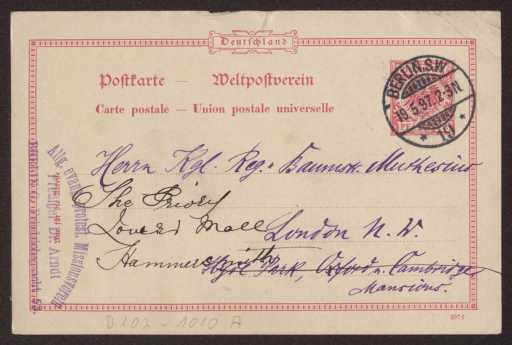 Deutschland
Postkarte — Weltpostverein
Carte postale — Union postale universelle
BERLIN. S.W.
19.5.97. 2-3N.
Herrn Kgl. Reg. Baumstr. Muthesius
The Priory
Lower Mall
London N. W.
Hammersmith
Hyde Park, Oxford u. Cambridge
Mansions.
Allg. evang. protest. Missionsverein
Prediger Dr. Arndt
D 102 - 1010 A